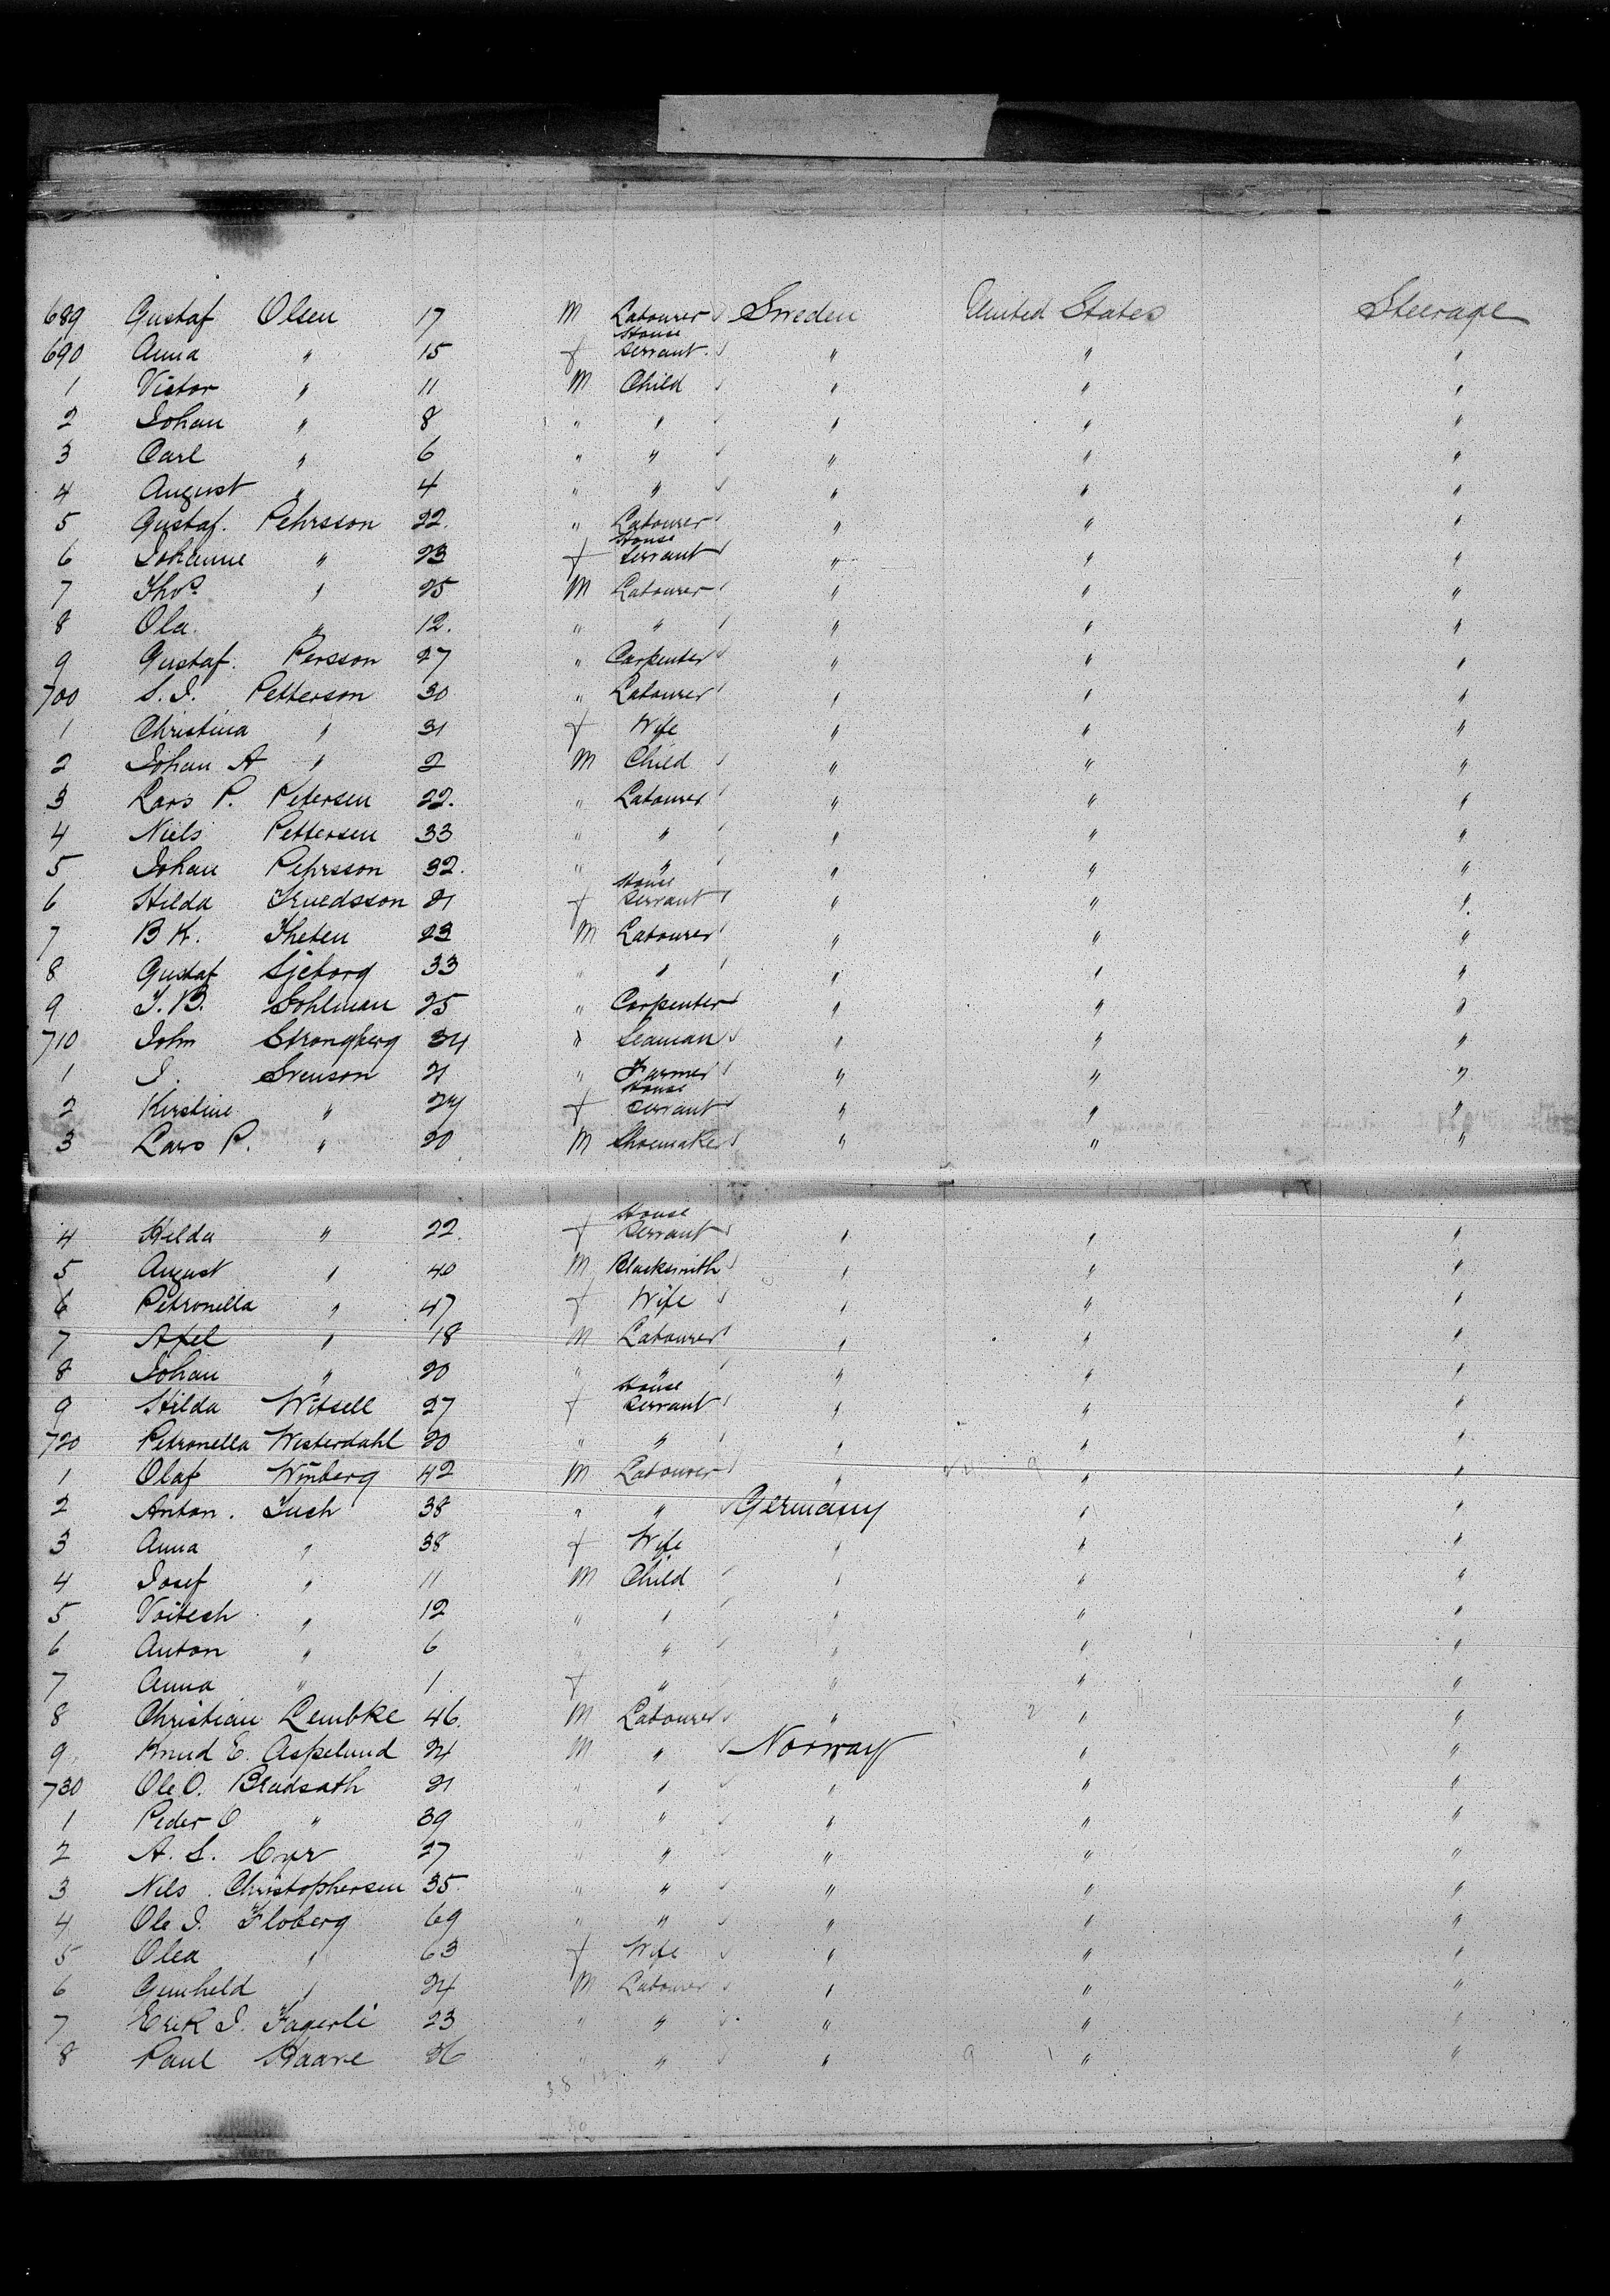 689 Gustaf Olsen 17 M Labourer Sweden United States Steerage
690 Anna " 15 f House Servant " " "
1 Victor " 11 M Child " " "
2 Johan " 8 " " " " "
3 Carl " 6 " " " " "
4 August " 4 " " " " "
5 Gustaf. Pehrsson 22. " Labourer " " "
6 Johanne " 23 f House Servant " " "
7 Thos " 25 M Labourer " " "
8 Ola. " 12. " " " " "
9 Gustaf. Persson 27 " Carpenter " " "
700 S. J. Petterson 30 " Labourer " " "
1 Christina " 31 f Wife " " "
2 Johan A " 2 M Child " " "
3 Lars P. Petersen 22. " Labourer " " "
4 Niels Pettersen 33 " " " " "
5 Johan Pehrsson 32. " " " " "
6 Hilda 21 f House Servant " " "
7 B K. Theten 23 M Labourer " " "
8 Gustaf Sjeborg 33 " " " " "
9 J. B. 25 " Carpenter " " "
710 John Strongberg 34 " Seaman " " "
1 J. Svenson 21 " Farmer " " "
2 Kirstine " 24 f House Servant " " "
3 Lars P. " 20 M Shoemaker " " "
4 Hilda " 22. f House Servant " " "
5 August " 40 M Blacksmith " " "
6 Petronella " 47 f Wife " " "
7 Axel " 18 M Labourer " " "
8 Johan " 20 " " " " "
9 Hilda Witsell 27 f House Servant " " "
720 Petronella Westerdahl 20 " " " " "
1 Olaf Winberg 42 M Labourer " " "
2 Anton. Tuch 38 " " Germany " "
3 Anna " 38 f Wife " " "
4 Josef " 11 M Child " " "
5 Voitech " 12 " " " " "
6 Anton " 6 " " " " "
7 Anna " 1 f " " " "
8 Christian Lembke 46. M Labourer " " "
9 Knud E. Aspelund 24 M " Norway " "
730 Ole O. Bradsath 21 " " " " "
1 Peder O " 39 " " " " "
2 A. S. 27 " " " " "
3 Nils Christophersen 35 " " " " "
4 Ole J. Floberg 69 " " " " "
5 Olea " 63 f Wife " " "
6 Gunheld " 24 M Labourer " " "
7 Erik J. Fagerli 23 " " " " "
8 Paul Haave 26 " " " " "